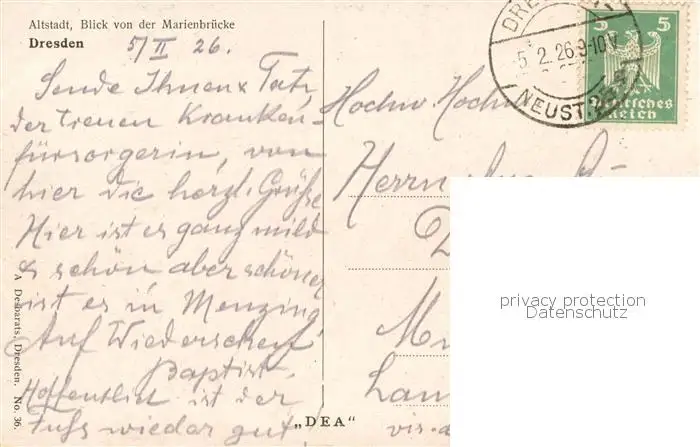 Altstadt, Blick von der Marienbrücke
Dresden
5/II 26.
Sende Ihnen & Tatz,
der treuen Kranken-
fürsorgerin, von
hier die herzl. Grüße
Hier ist es ganz mild
& schön aber schöner
ist es in Menzing
Auf Wiedersehen
Baptist.
Hoffentlich ist der
Fuß wieder gut!
A. Desbarats, Dresden. No. 36.
„DEA“
Hochw. Hochw.
Herrn
DRE
5.2.26.9-10V.
NEUST.
5 5
Deutsches
Reich
vis-a-
privacy protection
Datenschutz